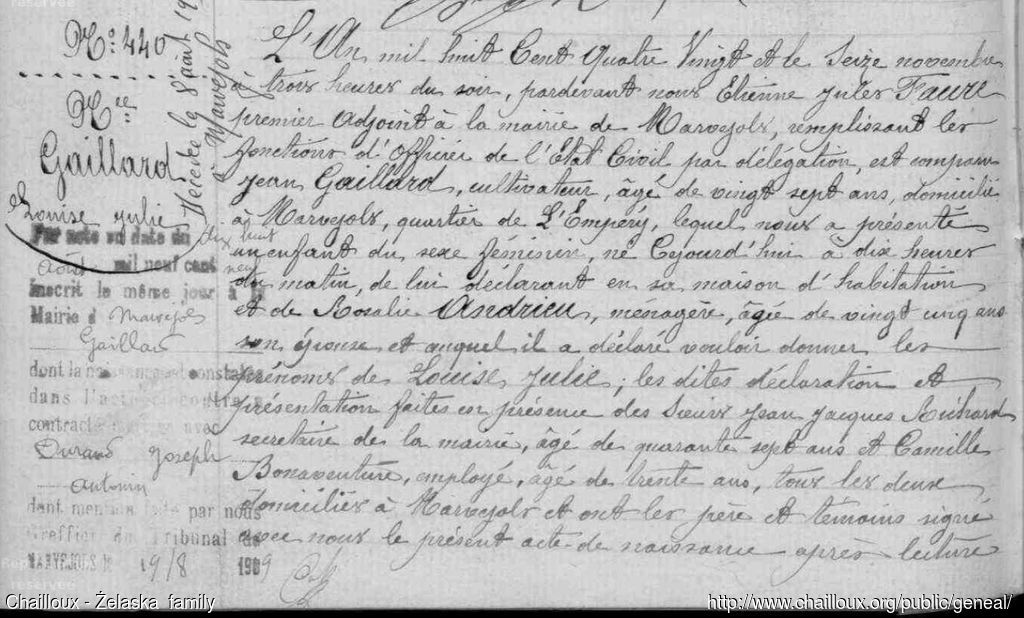 No. 440
Nce
Gaillard
Louise Julie
Par acte en date du dix huit
Août mil neuf cent neuf
inscrit le même jour à la
Mairie d Marvejols
Gaillard
dont la naissance est constatée
dans l'acte ci-contre a
contracté mariage avec
Durand Joseph
Antonin
dont mention faite par nous
Greffier du Tribunal de
MARVEJOLS le 19/8 1909
le 8 août 19
à Marvejols
L'An mil huit Cent Quatre Vingt et le Seize novembre
à trois heures du soir, pardevant nous Etienne Jules Faure
premier Adjoint à la mairie de Marvejols, remplissant les
fonctions d'Officier de l'Etat Civil par délégation, est comparu
Jean Gaillard, cultivateur, âgé de vingt sept ans, domicilié
à Marvejols, quartier de L'Empery, lequel nous a présenté
un enfant du sexe féminin, né Cejourd'hui à dix heures
du matin, de lui déclarant en sa maison d'habitation
et de Rosalie Andrieu, ménagère, âgée de vingt cinq ans
son épouse et auquel il a déclaré vouloir donner les
prénoms de Louise Julie; les dites déclaration et
présentation faites en présence des Sieurs Jean Jacques Richard
secrétaire de la mairie, âgé de quarante sept ans et Camille
Bonaventure, employé, âgé de trente ans, tous les deux
domiciliés à Marvejols et ont les père et témoins signé
avec nous le présent acte de naissance après lecture
Chailloux - Żelaska family
http://www.chailloux.org/public/geneal/